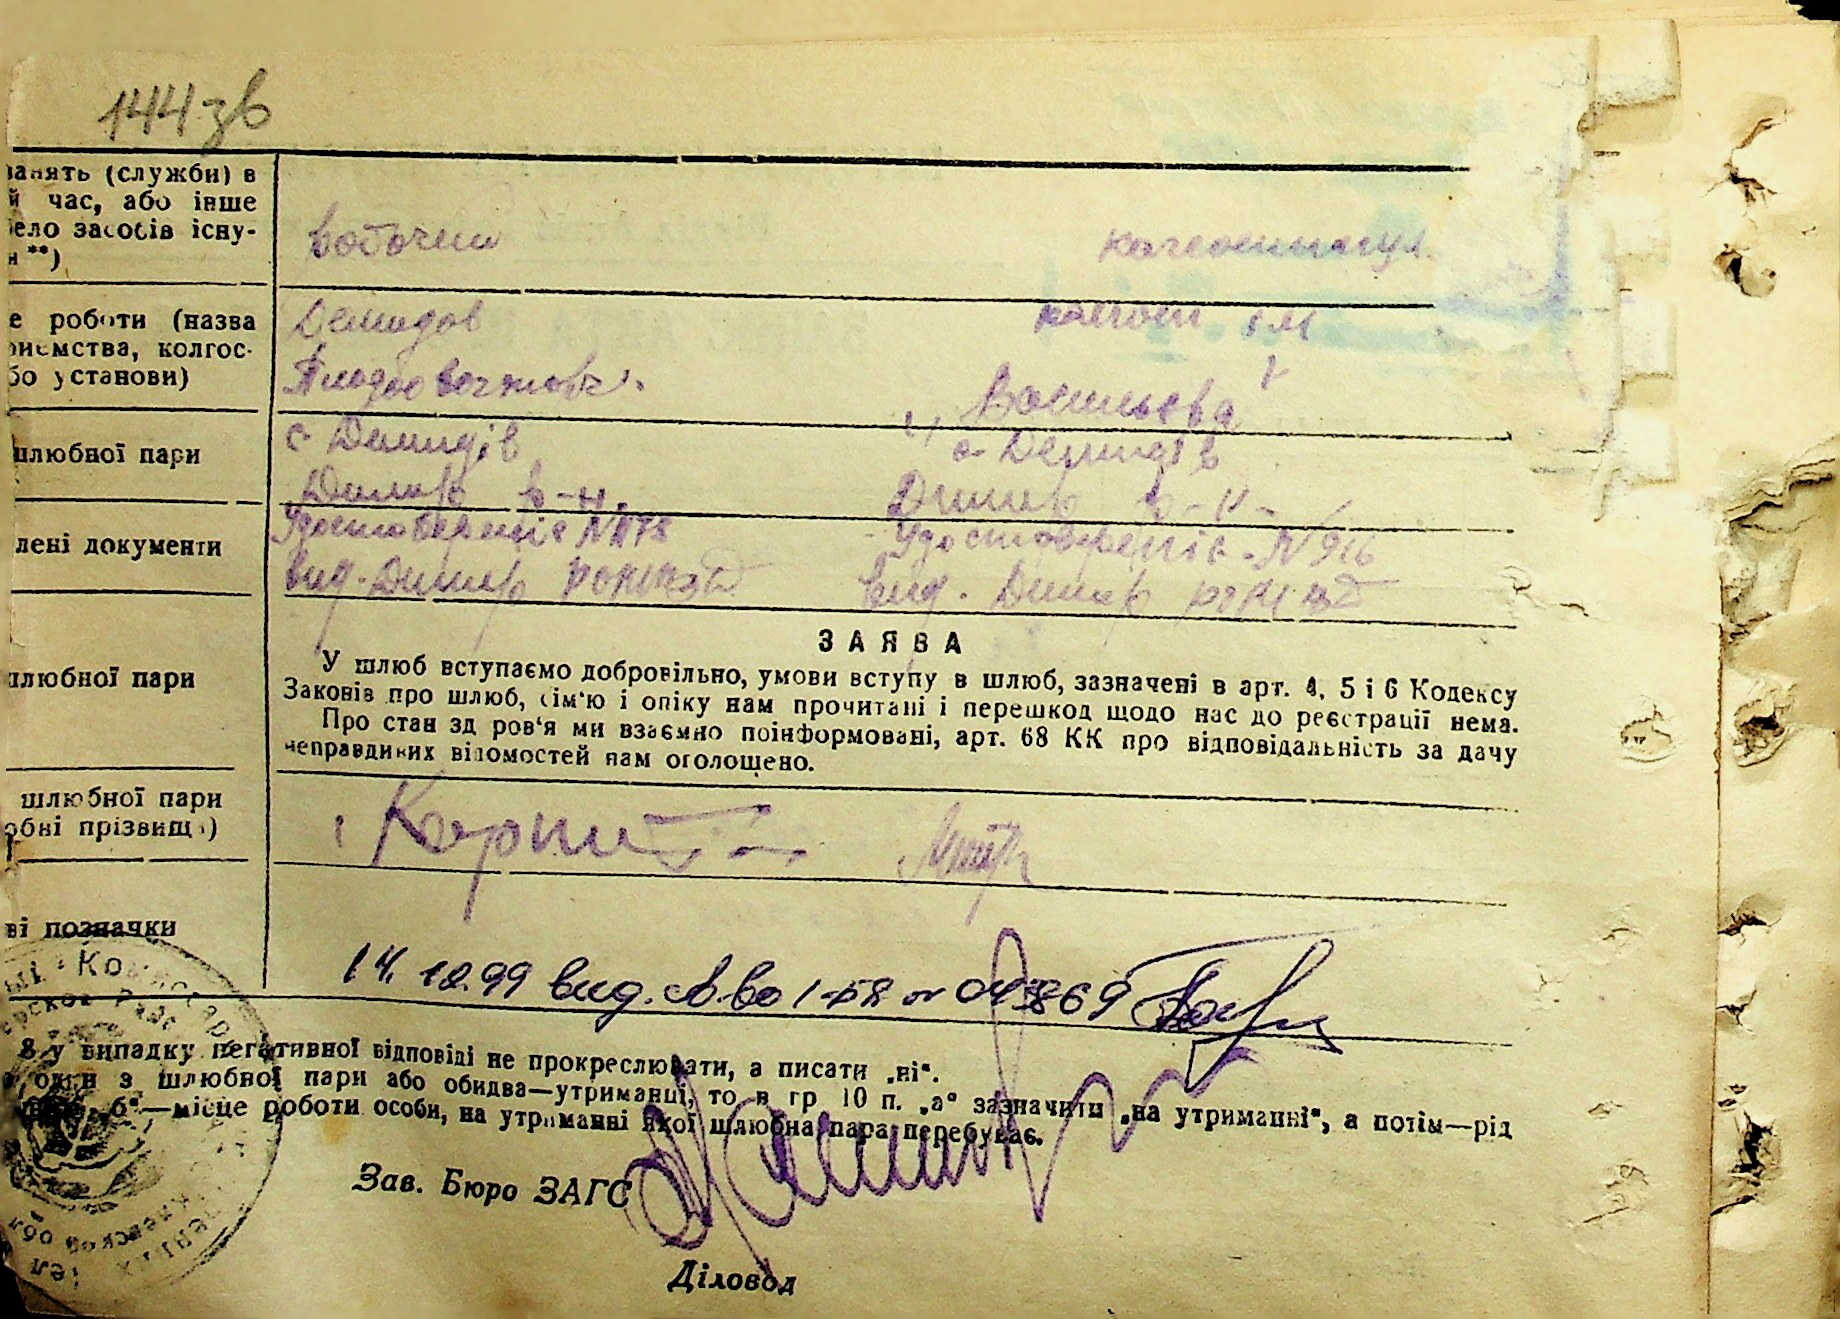 144 зв
занять (служби) в
й час, або інше
ело засобів існу-
и **)
робочий
колгоспниця
е роботи (назва
риємства, колгос-
бо установи)
Демидов
Плодоовочтовг.
колгосп ім
Васильєва
шлюбної пари
с. Демидів
Димер р-н.
с. Демидів
Димер р-н.
лені документи
Удостоверепіє №
вид. Димер
Удостоверепіє №
вид. Димер
шлюбної пари
ЗАЯВА
У шлюб вступаємо добровільно, умови вступу в шлюб, зазначені в арт. 4, 5 і 6 Кодексу
Законів про шлюб, сім'ю і опіку нам прочитані і перешкод щодо нас до реєстрації нема.
Про стан здоров'я ми взаємно поінформовані, арт. 68 КК про відповідальність за дачу
неправдивих відомостей нам оголошено.
шлюбної пари
обні прізвища)
ві позначки
14.12.99 вид. св-во 1-БК № 045869
8 у випадку негативної відповіді не прокреслювати, а писати „ні“.
один з шлюбної пари або обидва—утриманці, то в гр 10 п. „а“ зазначити „на утриманні“, а потім—рід
„б“—місце роботи особи, на утриманні якої шлюбна пара перебуває.
Зав. Бюро ЗАГС
Діловод